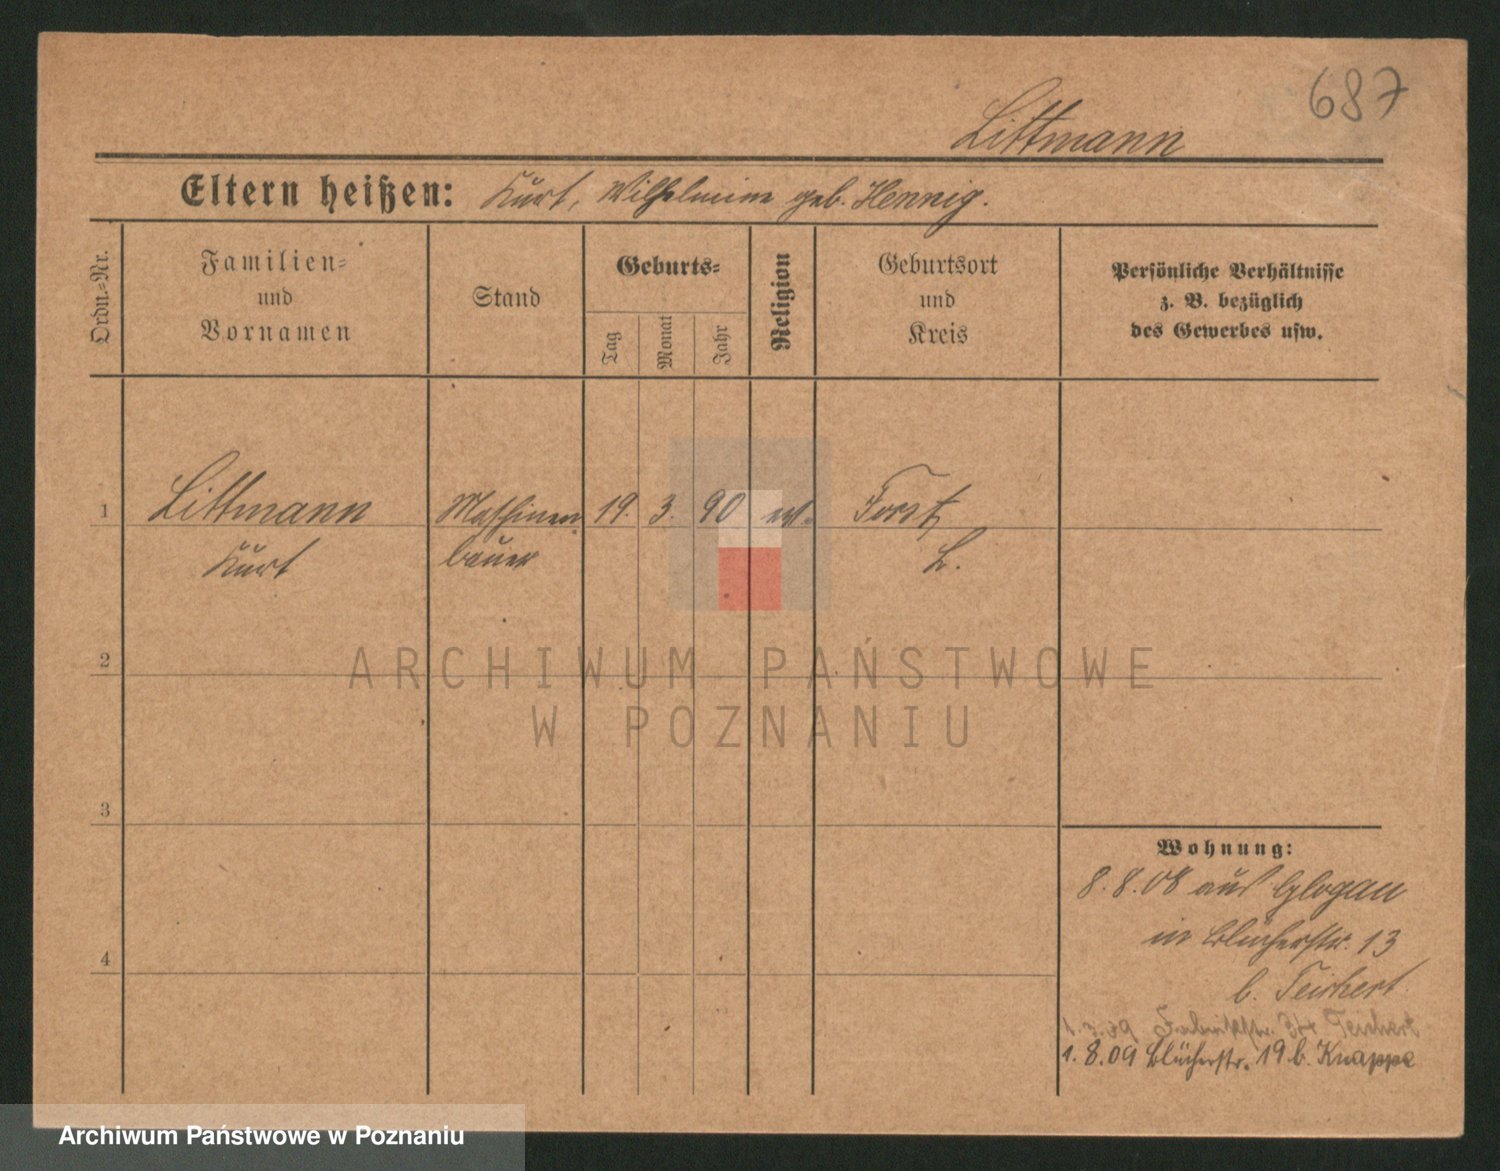 687
Littmann
Eltern heißen: Kurt, Wilhelmine geb. Hennig.
Ordn.=Nr.
Familien=
und
Vornamen
Stand
Geburts=
Tag
Monat
Jahr
Religion
Geburtsort
und
Kreis
Persönliche Verhältnisse
z. B. bezüglich
des Gewerbes usw.
1 Littmann Maschinen 19. 3. 90 ev. Forst
Kurt bauer L.
2
3
4
Wohnung:
8.8.08 aus Glogau
in Blücherstr. 13
b. Teichert
Teichert
1.8.09 Blücherstr. 19 b. Knappe
ARCHIWUM PAŃSTWOWE
W POZNANIU
Archiwum Państwowe w Poznaniu